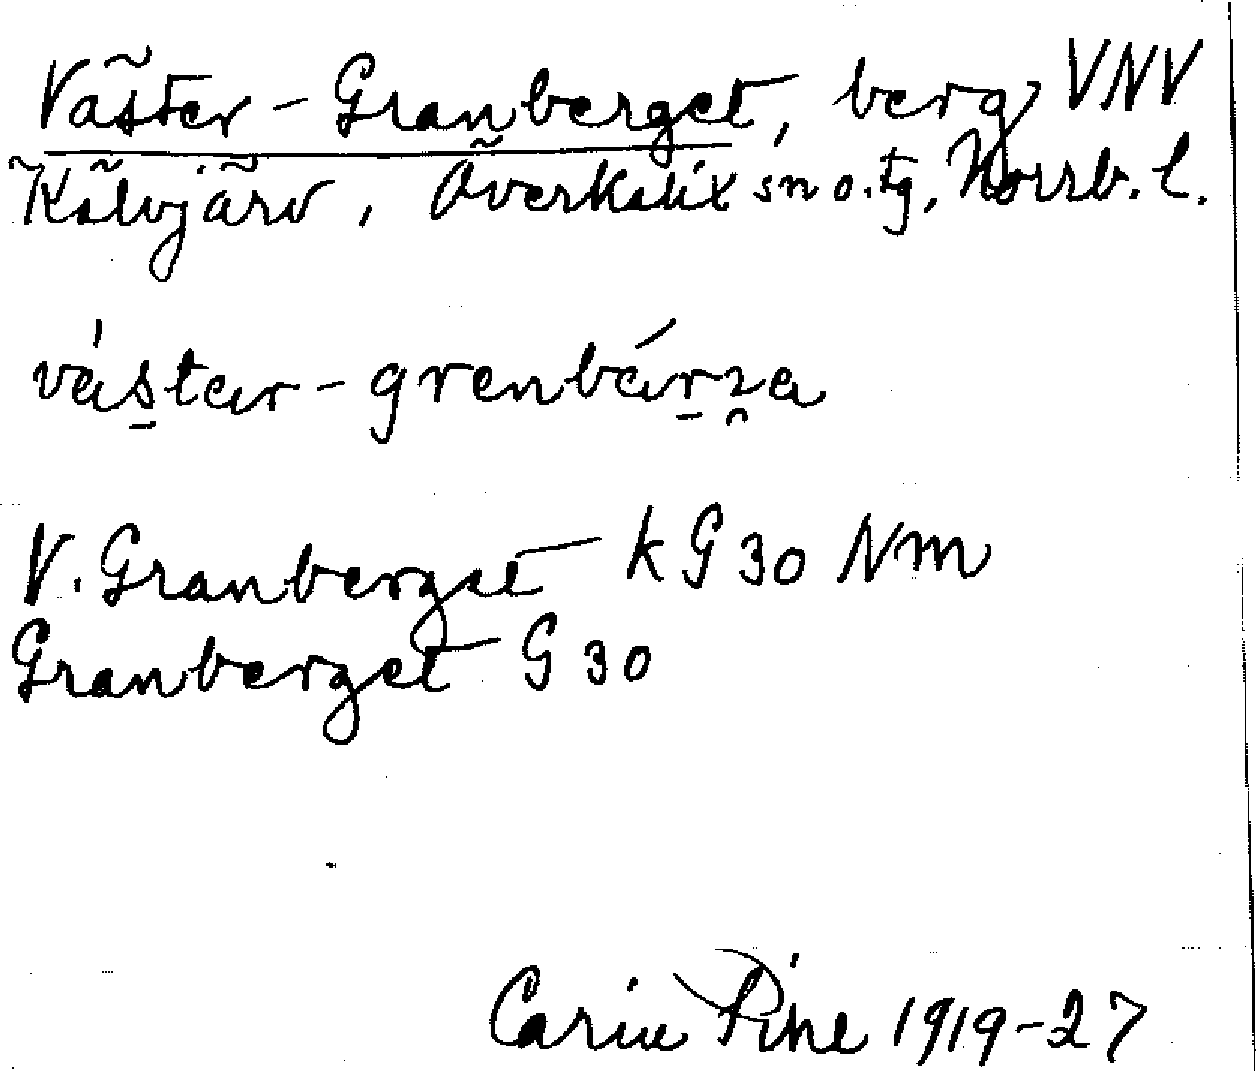 Väster-Granberget, berg VNV
Kälvjärv, Överkalix sn o. tg, Norrb. l.
västar-grenbárza
V. Granberget kG 30 Nm
Granberget G 30
Carin Pihl 1919-27